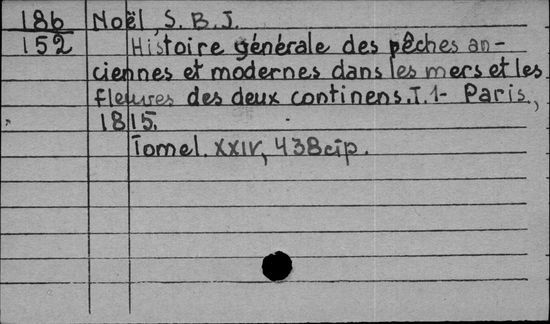 186 Noël, S. B. J.
152 Histoire générale des pêches an-
ciennes et modernes dans les mers et les
fleuves des deux continens. T.1- Paris,
1815.
Tome1. XXIV, 438 cтр.